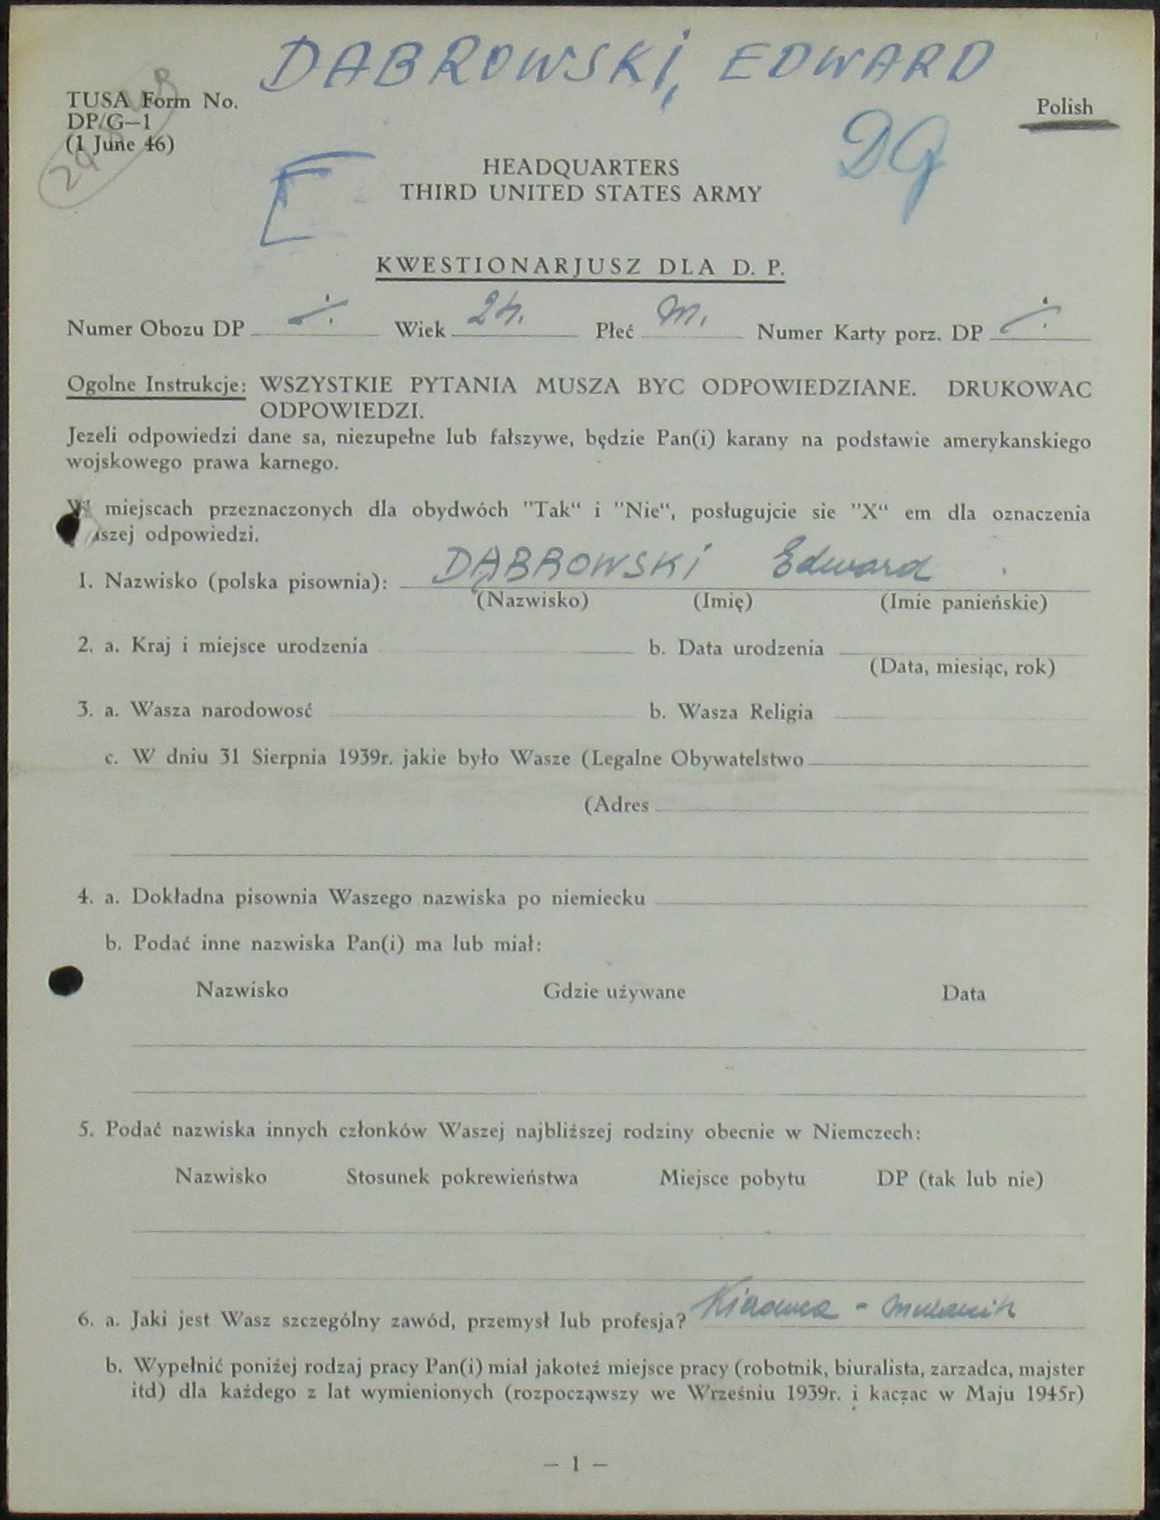 DABROWSKI, EDWARD
TUSA Form No.
DP/G—1
(1 June 46)
Polish
DG
HEADQUARTERS
THIRD UNITED STATES ARMY
KWESTIONARJUSZ DLA D. P.
Numer Obozu DP ·/. Wiek 24. Płeć M. Numer Karty porz. DP ·/.
Ogolne Instrukcje: WSZYSTKIE PYTANIA MUSZA BYC ODPOWIEDZIANE. DRUKOWAC
ODPOWIEDZI.
Jezeli odpowiedzi dane sa, niezupełne lub fałszywe, będzie Pan(i) karany na podstawie amerykanskiego
wojskowego prawa karnego.
W miejscach przeznaczonych dla obydwóch "Tak“ i "Nie“, posługujcie sie "X“ em dla oznaczenia
aszej odpowiedzi.
1. Nazwisko (polska pisownia): DĄBROWSKI Edward
(Nazwisko) (Imię) (Imie panieńskie)
2. a. Kraj i miejsce urodzenia b. Data urodzenia
(Data, miesiąc, rok)
3. a. Wasza narodowosć b. Wasza Religia
c. W dniu 31 Sierpnia 1939r. jakie było Wasze (Legalne Obywatelstwo
(Adres
4. a. Dokładna pisownia Waszego nazwiska po niemiecku
b. Podać inne nazwiska Pan(i) ma lub miał:
Nazwisko Gdzie używane Data
5. Podać nazwiska innych członków Waszej najbliższej rodziny obecnie w Niemczech:
Nazwisko Stosunek pokrewieństwa Miejsce pobytu DP (tak lub nie)
6. a. Jaki jest Wasz szczególny zawód, przemysł lub profesja? Kierowca - mechanik
b. Wypełnić poniżej rodzaj pracy Pan(i) miał jakoteż miejsce pracy (robotnik, biuralista, zarzadca, majster
itd) dla każdego z lat wymienionych (rozpocząwszy we Wrześniu 1939r. i kacząc w Maju 1945r)
— 1 —